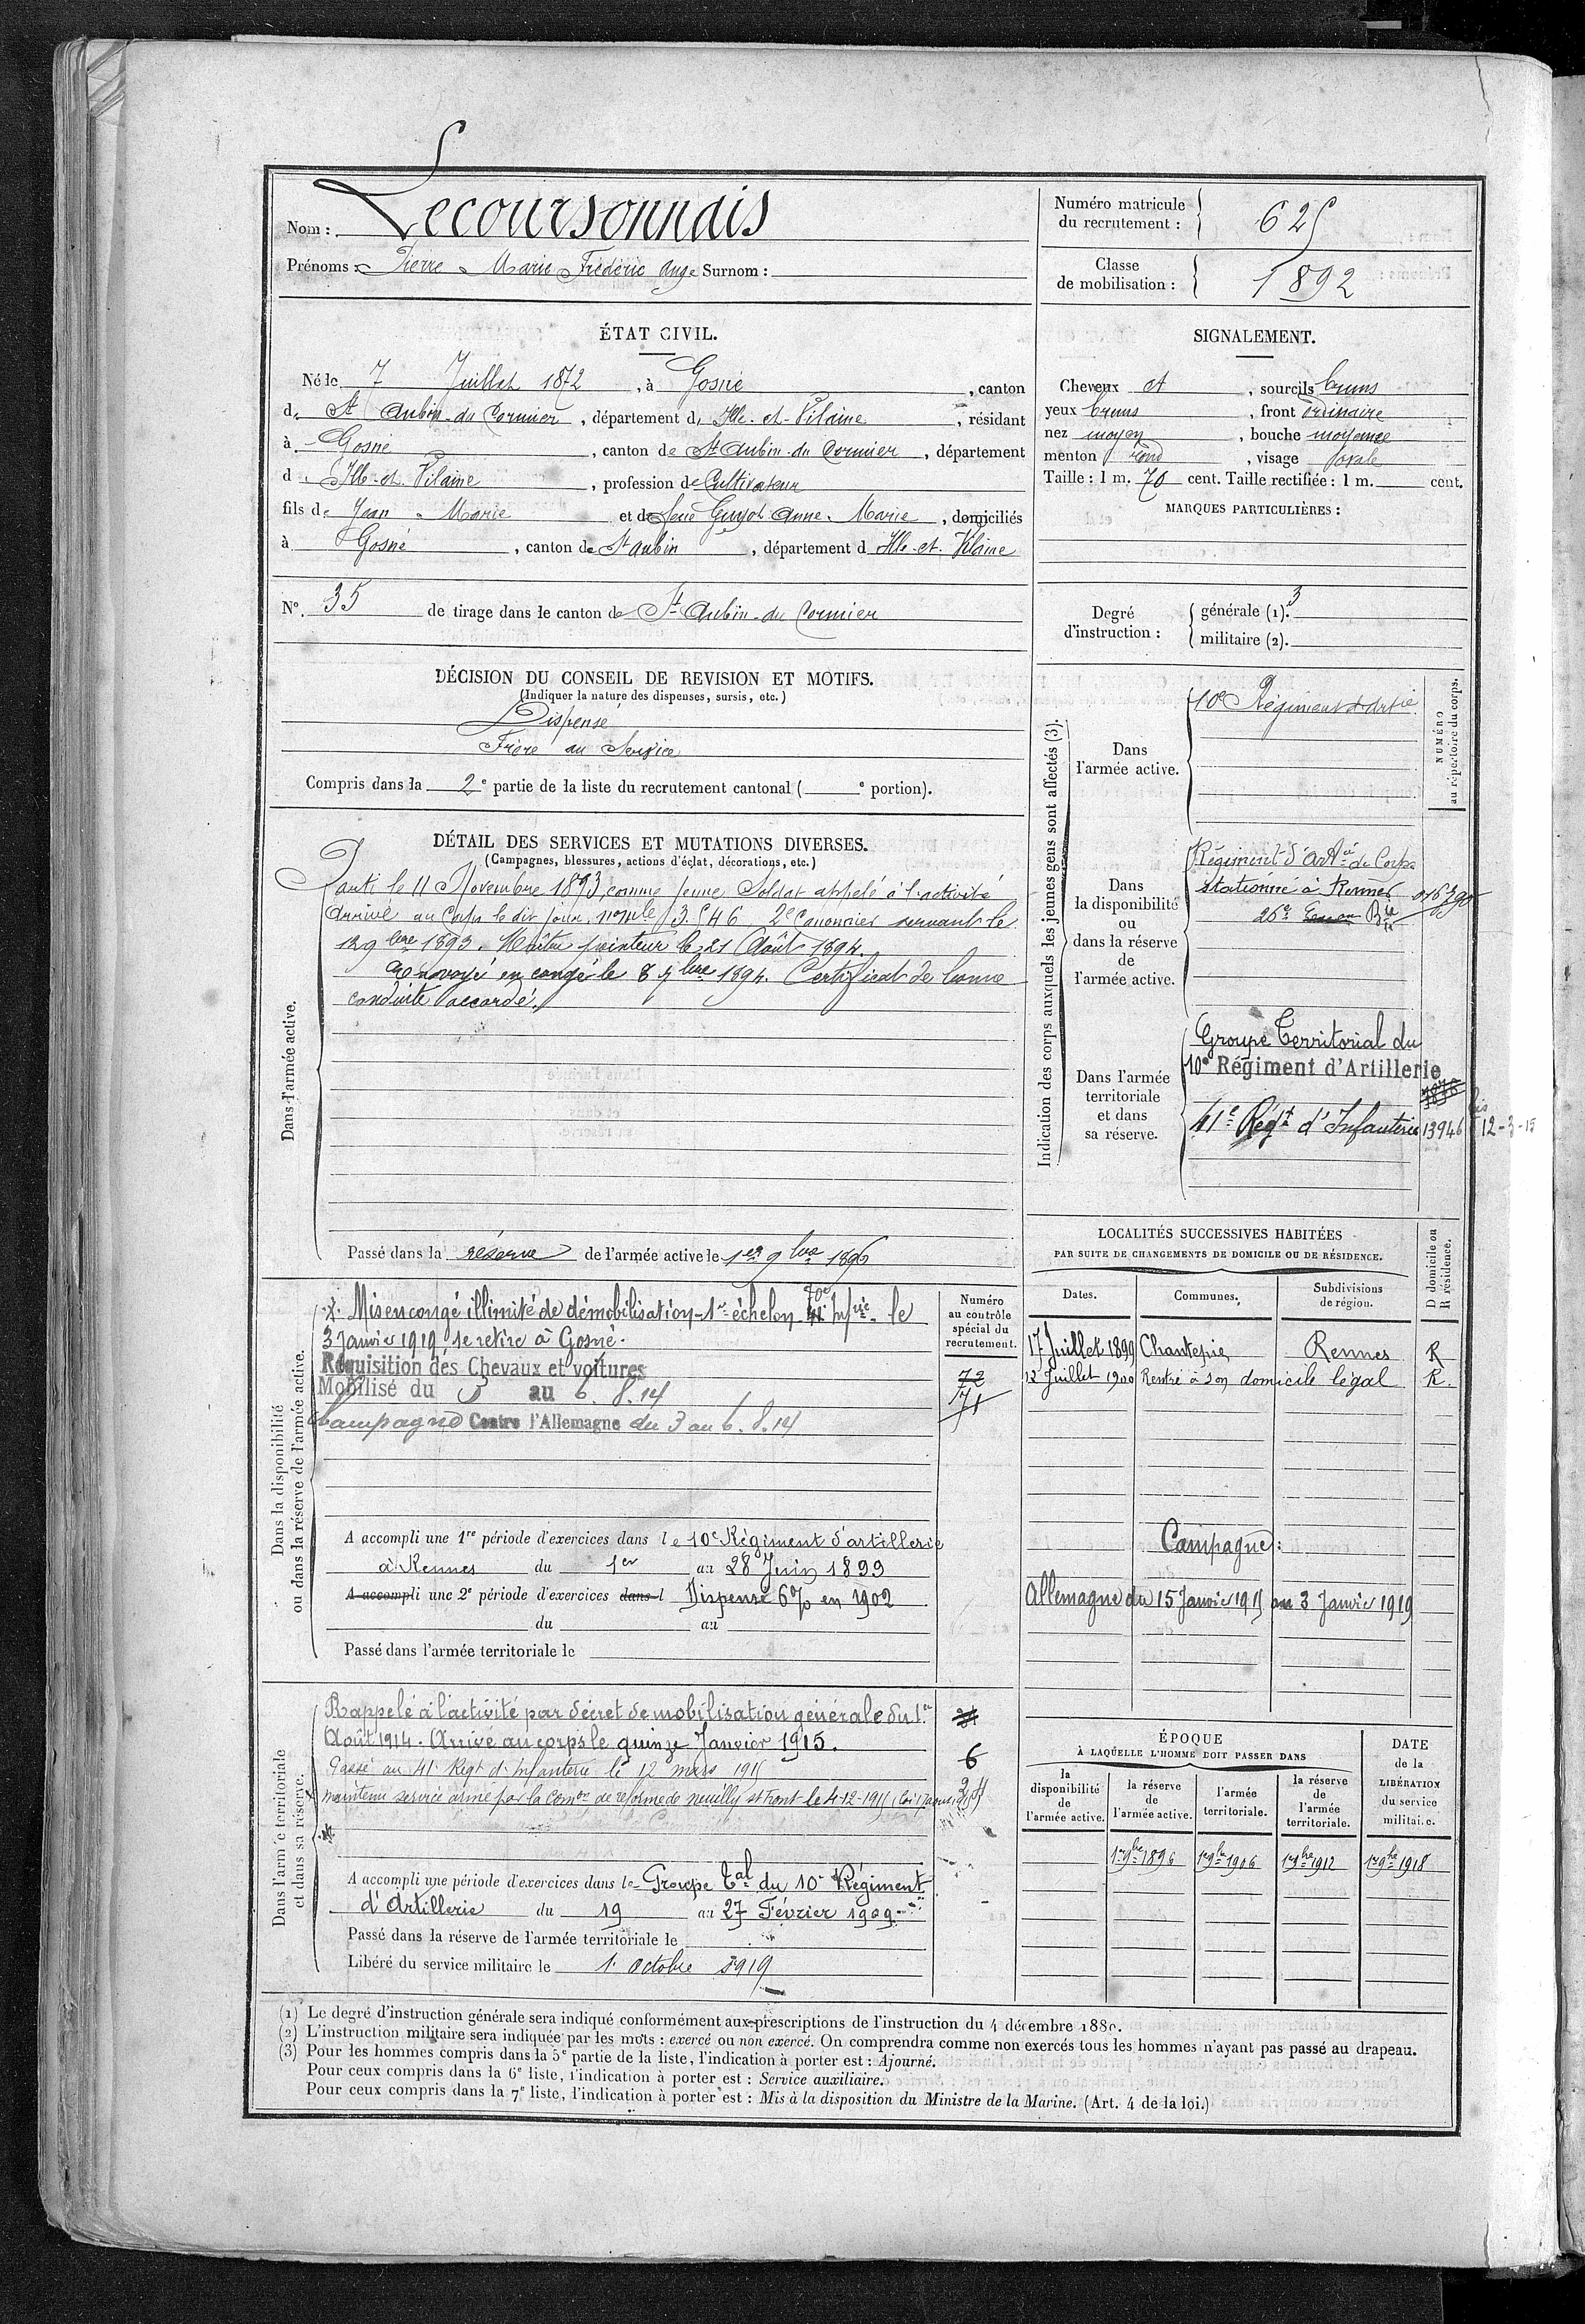 Nom : Lecoursonnais
Prénoms : Pierre Marie Frédéric Ange Surnom :
Numéro matricule du recrutement : 625
Classe de mobilisation : 1892
ÉTAT CIVIL.
Né le 7 Juillet 1872, à Gosné, canton
de St Aubin-du-Cormier, département d'Ille-et-Vilaine, résidant
à Gosné, canton de St Aubin-du-Cormier, département
d Ille-et-Vilaine, profession de Cultivateur
fils de Jean-Marie et de Guyot Anne-Marie, domiciliés
à Gosné, canton de St Aubin, département d Ille-et-Vilaine
N° 35 de tirage dans le canton de St Aubin-du-Cormier
SIGNALEMENT.
Cheveux et, sourcils bruns
yeux bruns, front ordinaire
nez moyen, bouche moyenne
menton rond, visage ovale
Taille : 1 m. 70 cent. Taille rectifiée : 1 m. cent.
MARQUES PARTICULIÈRES :
Degré d'instruction :
générale (1). 3
militaire (2).
DÉCISION DU CONSEIL DE REVISION ET MOTIFS.
(Indiquer la nature des dispenses, sursis, etc.)
Dispensé
Frère au Service
Compris dans la 2e partie de la liste du recrutement cantonal ( e portion).
DÉTAIL DES SERVICES ET MUTATIONS DIVERSES.
(Campagnes, blessures, actions d'éclat, décorations, etc.)
Dans l'armée active.
Parti le 11 Novembre 1893, comme jeune Soldat appelé à l'activité
Arrivé au Corps le dit jour, 2e Canonnier servant le
12 9bre 1893. Maître pointeur le 21 Août 1894.
Renvoyé en congé le 1894. Certificat de bonne
conduite accordé.
Passé dans la réserve de l'armée active le 1er 9bre 1896
Indication des corps auxquels les jeunes gens sont affectés (3).
NUMÉRO au répertoire du corps.
Dans l'armée active.
10e Régiment d'Artie
Dans la disponibilité ou dans la réserve de l'armée active.
Régiment d'Artie de Corps
stationné à Rennes
26e Bie
Dans l'armée territoriale et dans sa réserve.
Groupe Territorial du
10e Régiment d'Artillerie
41e Régt d'Infanterie 13946 bis 12-3-15
Dans la disponibilité ou dans la réserve de l'armée active.
Numéro au contrôle spécial du recrutement.
Mis en congé illimité de démobilisation 1er échelon 70e 41e Infrie le
3 Janvier 1919, se retire à Gosné.
Réquisition des Chevaux et voitures
Mobilisé du 3 au 6.8.14
Campagne Contre l'Allemagne du 3 au 6.8.14
72
71
A accompli une 1re période d'exercices dans le 10e Régiment d'artillerie
à Rennes du 1er au 28 Juin 1899
A accompli une 2e période d'exercices dans l Dispensé 6% en 1902
du au
Passé dans l'armée territoriale le
LOCALITÉS SUCCESSIVES HABITÉES
PAR SUITE DE CHANGEMENTS DE DOMICILE OU DE RÉSIDENCE.
Dates. Communes. Subdivisions de région. D domicile ou R résidence.
17 Juillet 1899 Chantepie Rennes R
12 Juillet 1900 Rentré à son domicile légal R.
Campagne :
Allemagne du 15 Janvier 1915 au 3 Janvier 1919
Dans l'armée territoriale et dans sa réserve.
Rappelé à l'activité par décret de mobilisation générale du 1er
Août 1914. Arrivé au corps le quinze Janvier 1915.
Passé au 41e Régt d'Infanterie le 12 mars 1915
maintenu service armé par la Comon de réforme de Neuilly St Front le 4-12-1915, loi 17 aout
6
A accompli une période d'exercices dans le Groupe Tal du 10e Régiment
d'Artillerie du 19 au 27 Février 1909
Passé dans la réserve de l'armée territoriale le
Libéré du service militaire le 1er Octobre 1919
ÉPOQUE
À LAQUELLE L'HOMME DOIT PASSER DANS
la disponibilité de l'armée active. la réserve de l'armée active. l'armée territoriale. la réserve de l'armée territoriale. DATE de la LIBÉRATION du service militaire.
1er 9bre 1896 1er 9bre 1906 1er 9bre 1912 1er 9bre 1918
(1) Le degré d'instruction générale sera indiqué conformément aux prescriptions de l'instruction du 4 décembre 1889.
(2) L'instruction militaire sera indiquée par les mots : exercé ou non exercé. On comprendra comme non exercés tous les hommes n'ayant pas passé au drapeau.
(3) Pour les hommes compris dans la 5e partie de la liste, l'indication à porter est : Ajourné.
Pour ceux compris dans la 6e liste, l'indication à porter est : Service auxiliaire.
Pour ceux compris dans la 7e liste, l'indication à porter est : Mis à la disposition du Ministre de la Marine. (Art. 4 de la loi.)